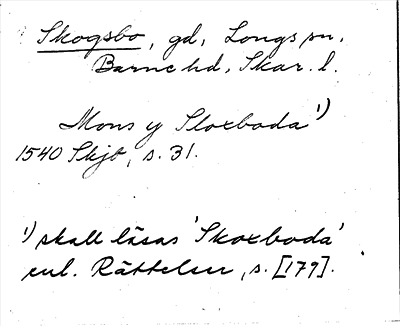 Skogsbo, gd, Longs sn,
Barne hd, Skar. l.
Mons y Sloxboda ¹)
1540 Skjb, s. 31.
¹) skall läsas 'Skoxboda'
enl. Rättelser, s. [179].